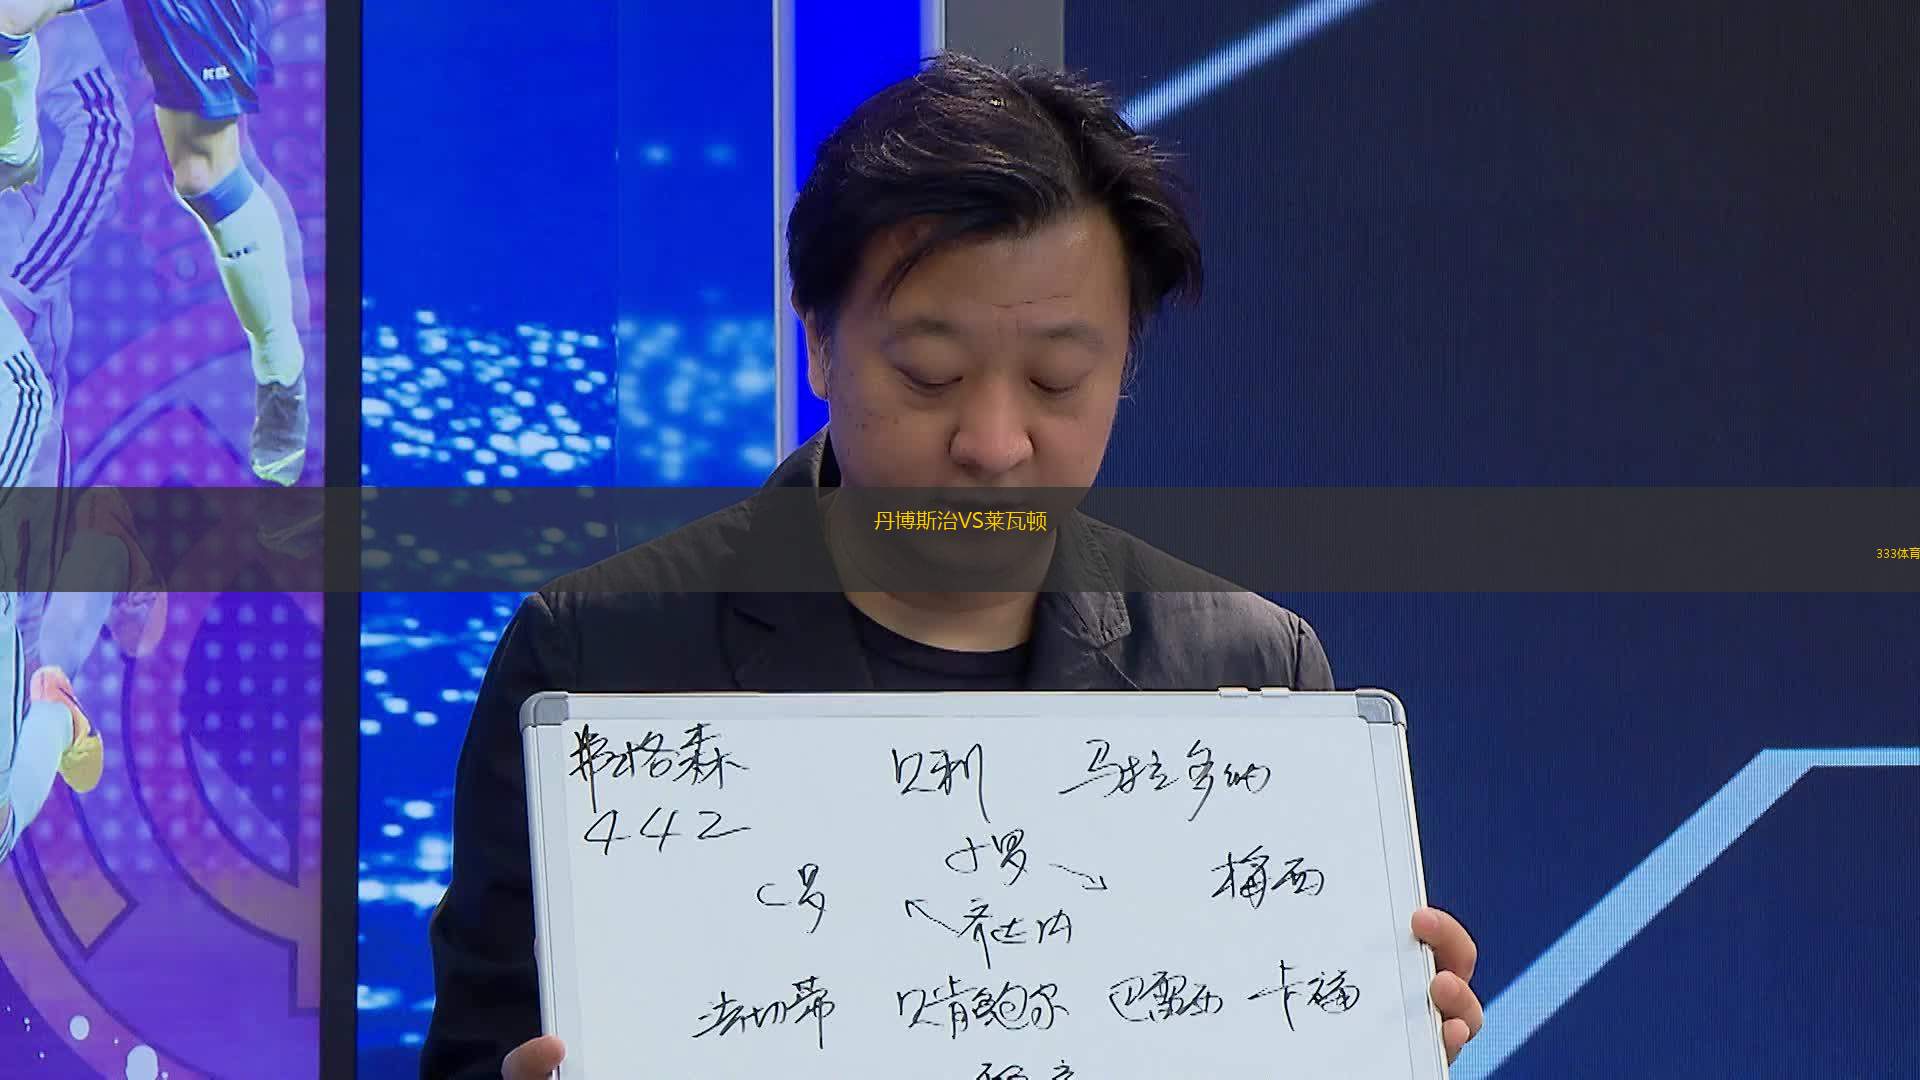 丹博斯治VS莱瓦顿
333体育
弗格森 贝利 马拉多纳
442
小罗
C罗 梅西
齐达内
法切蒂 贝肯鲍尔 巴雷西 卡福